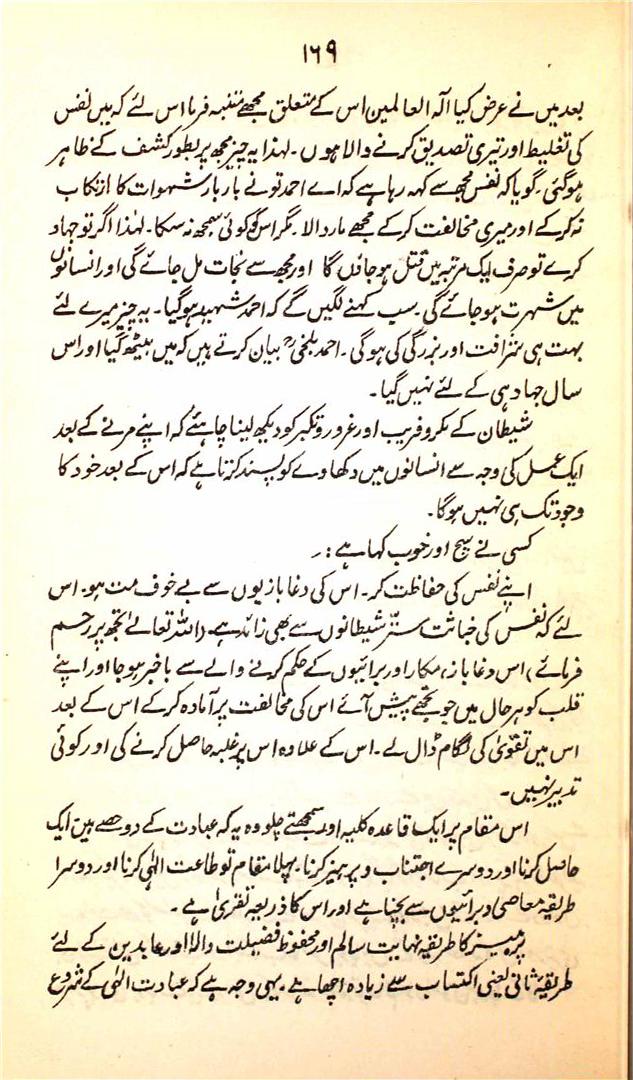 ۱۶۹
بعد میں نے عرض کیا الہ العالمین اس کے متعلق مجھے متنبہ فرما اس لئے کہ میں نفس
کی تغلیط اور تیری تصدیق کرنے والا ہوں۔ لہذا یہ چیز مجھ پر بطور کشف کے ظاہر
ہو گئی۔ گویا کہ نفس مجھ سے کہہ رہا ہے کہ اے احمد تو نے بار بار شہوات کا ارتکاب
نہ کر کے اور میری مخالفت کر کے مجھے مار دالا۔ مگر اس کو کوئی سمجھ نہ سکا۔ لہٰذا اگر تو جہاد
کرے تو صرف ایک مرتبہ میں قتل ہو جاؤں گا اور مجھ سے نجات مل جائے گی اور انسانوں
میں شہرت ہو جائے گی۔ سب کہنے لگیں گے کہ احمد شہید ہو گیا۔ یہ چیز میرے لئے
بہت ہی شرافت اور بزرگی کی ہو گی۔ احمد بلخیؒ بیان کرتے ہیں کہ میں بیٹھ گیا اور اس
سال جہاد ہی کے لئے نہیں گیا۔
شیطان کے مکر و فریب اور غرور و تکبر کو دیکھ لینا چاہئے کہ اپنے مرنے کے بعد
ایک عمل کی وجہ سے انسانوں میں دکھاوے کو پسند کرتا ہے کہ اس کے بعد خود کا
وجود تک ہی نہیں ہو گا۔
کسی نے سچ اور خوب کہا ہے :۔
اپنے نفس کی حفاظت کر۔ اس کی دغا بازیوں سے بے خوف مت ہو۔ اس
لئے کہ نفس کی خباثت ستّر شیطانوں سے بھی زائد ہے۔ (اللہ تعالےٰ تجھ پر رحم
فرمائے) اس دغا باز، مکار اور برائیوں کے حکم کرنے والے سے باخبر ہو جا اور اپنے
قلب کو ہر حال میں جو تجھے پیش آئے اس کی مخالفت پر آمادہ کر کے اس کے بعد
اس میں تقویٰ کی لگام ڈال لے۔ اس کے علاوہ اس پر غلبہ حاصل کرنے کی اور کوئی
تدبیر نہیں۔
اس مقام پر ایک قاعدہ کلیہ اور سمجھتے چلو وہ یہ کہ عبادت کے دو حصے ہیں ایک
حاصل کرنا اور دوسرے اجتناب و پرہیز کرنا۔ پہلا مقام تو طاعت الٰہی کرنا اور دوسرا
طریقہ معاصی و برائیوں سے بچنا ہے اور اس کا ذریعہ تقویٰ ہے۔
پرہیز کا طریقہ نہایت سالم اور محفوظ فضیلت والا اور عابدین کے لئے
طریقۂ ثانی یعنی اکتساب سے زیادہ اچھا ہے۔ یہی وجہ ہے کہ عبادت الٰہی کے شروع